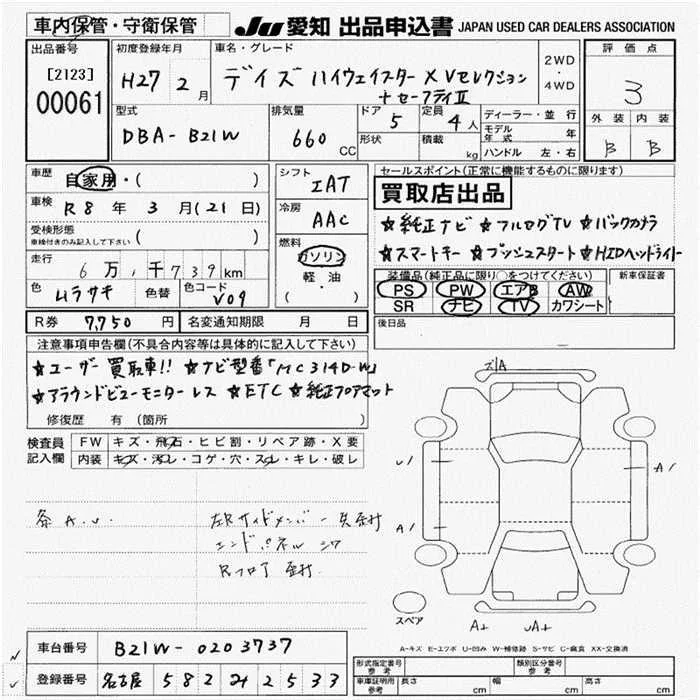 車内保管・守衛保管
JU 愛知 出品申込書 JAPAN USED CAR DEALERS ASSOCIATION
出品番号
[2123]
00061
初度登録年月
H27 2月
車名・グレード
デイズ ハイウェイスター X Vセレクション
+セーフティII
2WD
・
4WD
評価点
3
外装 内装
B B
型式
DBA-B21W
排気量
660 CC
ドア 5
形状
定員 4人
積載 kg
ディーラー・並行
モデル年式 年
ハンドル 左・右
車歴 自家用・( )
車検 R8年3月(21日)
受検形態
車検付きのみ記入して下さい ( )
走行 6万,千739km
色 ムラサキ 色替 色コード V09
シフト
IAT
冷房
AAC
燃料
ガソリン
軽・油
( )
セールスポイント(正常に機能するものに限ります)
買取店出品
☆純正ナビ ☆フルセグTV ☆バックカメラ
☆スマートキー ☆プッシュスタート ☆HIDヘッドライト
装備品(純正品に限り○をつけてください)
PS PW エアB AW
SR ナビ TV カワシート
新車保証書
後日品
R券 7,750円 名変通知期限 月 日
注意事項申告欄(不具合内容等は具体的に記入して下さい)
☆ユーザー買取車!! ☆ナビ型番「MC314D-W」
☆アラウンドビューモニターレス ☆ETC ☆純正フロアマット
修復歴 有 (箇所 )
検査員
記入欄
FW キズ・飛石・ヒビ割・リペア跡・X要
内装 キズ・汚レ・コゲ・穴・スレ・キレ・破レ
左Rサイドメンバー
エンドパネル
Rフロア
ズ/A
U/
A/
A/
スペア
A+
UA+
A-キズ E-エクボ U-凹み W-補修跡 S-サビ C-腐食 XX-交換済
車台番号 B21W-0203737
登録番号 名古屋 582 2533
形式指定番号 参考
類別区分番号 参考
車庫証明用 参考 長さ cm 幅 cm 高さ cm